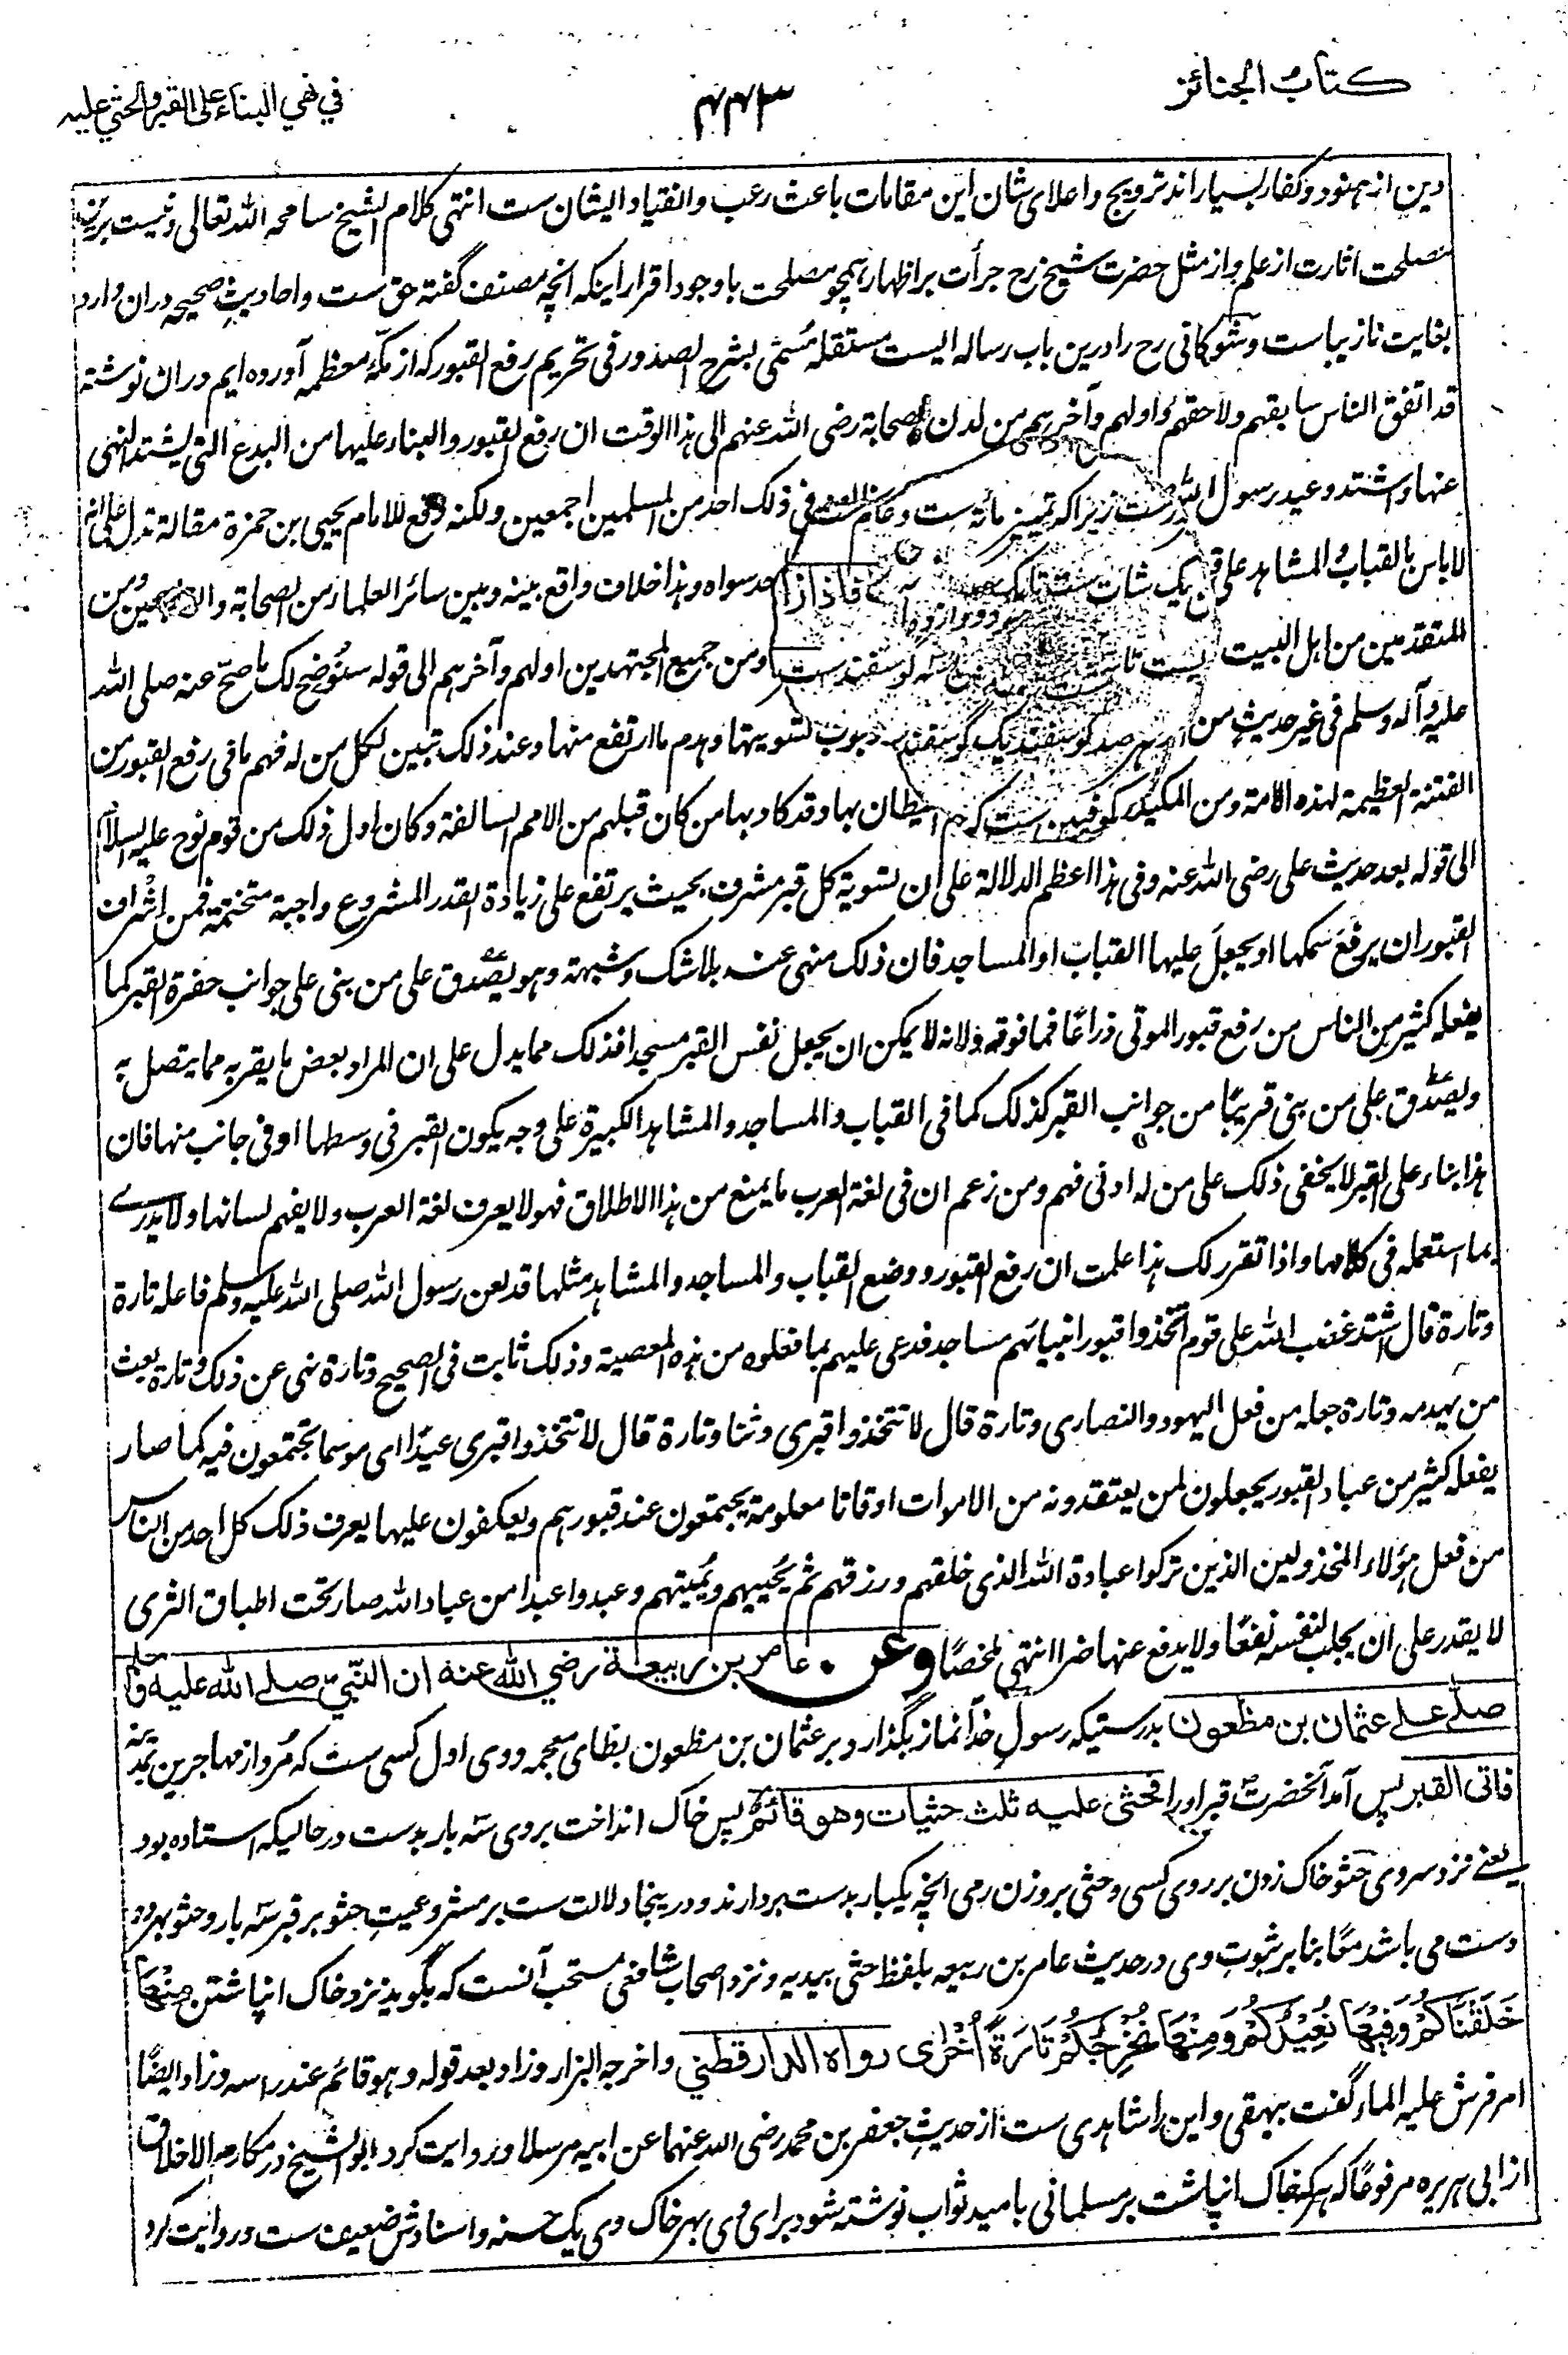 كتاب الجنائز
۴۴۳
في نهي البناء على القبر والحثي عليه
دین از هنود و کفار بسیار اند ترویج و اعلای شان این مقامات باعث رعب و انقیاد ایشان ست انتهی کلام الشیخ سامحه الله تعالی و نیست برین
مصلحت اثارت از علم و از مثل حضرت شیخ رح جرأت بر اظهار همچو مصلحت با وجود اقرار اینکه انچه مصنف گفته حق ست و احادیث صحیحه دران وارد
بغایت نازیباست و شوکانی رح را درین باب رساله ایست مستقله مسمی بشرح الصدور فی تحریم رفع القبور که از مکه معظمه آورده ایم دران نوشته
قد اتفق الناس سابقهم ولاحقهم واولهم وآخرهم من لدن الصحابة رضی الله عنهم الی هذا الوقت ان رفع القبور والبناء علیها من البدع التی یشتد النهی
عنها واشتد وعید رسول الله فی ذلک احد من المسلمین اجمعین ولکنه وقع للامام یحیی بن حمزة مقالة تدل علی انه
لاباس بالقباب والمشاهد علی احد سواه وهذا خلاف واقع بینه وبین سائر العلماء من الصحابة والتابعین ومن
المتقدمین من اهل البیت ومن جمیع المجتهدین اولهم وآخرهم الی قوله سنوضح لک ما صح عنه صلی الله
علیه وآله وسلم فی غیر حدیث من وجوب تسویتها وهدم ما ارتفع منها وعند ذلک تبین لکل من له فهم ما فی رفع القبور من
الفتنة العظیمة لهذه الامة ومن المکیدة الشیطان بها وقد کاد بها من کان قبلهم من الامم السالفة وکان اول ذلک من قوم نوح علیه السلام
الی قوله بعد حدیث علی رضی الله عنه وفی هذا اعظم الدلالة علی ان تسویة کل قبر مشرف بحیث یرتفع علی زیادة القدر المشروع واجبة متختمة فمن اشراف
القبور ان یرفع سمکها او یجعل علیها القباب او المساجد فان ذلک منهی عنه بلاشک وشبهة وهو یصدق علی من بنی علی جوانب حفرة القبر کما
یفعله کثیر من الناس من رفع قبور الموتی ذراعا فما فوقه ولانه لا یمکن ان یجعل نفس القبر مسجدا فذلک مما یدل علی ان المراد بعض ما یقربه مما یتصل به
ویصدق علی من بنی قریبا من جوانب القبر کذلک کما فی القباب والمساجد والمشاهد الکبیرة علی وجه یکون القبر فی وسطها او فی جانب منها فان
هذا بناء علی القبر لا یخفی ذلک علی من له ادنی فهم ومن زعم ان فی لغة العرب ما یمنع من هذا الاطلاق فهو لا یعرف لغة العرب ولا یفهم لسانها ولا یدرے
بما استعمله فی کلامها واذا تقرر لک هذا علمت ان رفع القبور ووضع القباب والمساجد والمشاهد مثلها قد لعن رسول الله صلی الله علیه وسلم فاعله تارة
وتارة قال اشتد غضب الله علی قوم اتخذوا قبور انبیائهم مساجد فدعی علیهم بما فعلوه من هذه المعصیة وذلک ثابت فی الصحیح وتارة نهی عن ذلک وتارة بعث
من یهدمه وتارة جعله من فعل الیهود والنصاری وتارة قال لا تتخذوا قبری وثنا وتارة قال لا تتخذوا قبری عیدا ای موسما یجتمعون فیه کما صار
یفعله کثیر من عباد القبور یجعلون لمن یعتقدونه من الاموات اوقاتا معلومة یجتمعون عند قبورهم ویعکفون علیها یعرف ذلک کل احد من الناس
من فعل هؤلاء المخذولین الذین ترکوا عبادة الله الذی خلقهم ورزقهم ثم یحییهم ویمیتهم وعبدوا عبدا من عباد الله صار تحت اطباق الثری
لا یقدر علی ان یجلب لنفسه نفعا ولا یدفع عنها ضرا انتهی ملخصا وعن عامر بن ربیعة رضي الله عنه ان النبي صلے الله علیه وسلم
صلے علے عثمان بن مظعون بدرستیکه رسول خدا نماز بگذارد بر عثمان بن مظعون بظای معجمه ووی اول کسی ست که مرد از مهاجرین بمدینه
فاتی القبر پس آمد آنحضرت قبر او را فحثی علیه ثلث حثیات وهو قائم پس خاک انداخت بروی سه بار بدست در حالیکه استاده بود
یعنے نزد سر وی حثو خاک زدن بر روی کسی وحثی بروزن رمی انچه یکبار بدست بردارند ودرینجا دلالت ست بر مشروعیت حثو بر قبر سه بار وحثو بهر دو
دست می باشد معا بنا بر ثبوت وی در حدیث عامر بن ربیعه بلفظ حثی بیدیه ونزد اصحاب شافعی مستحب آنست که بگوید نزد خاک انپاشتن مِنْهَا
خَلَقْنَاكُمْ وَفِيْهَا نُعِيْدُكُمْ وَمِنْهَا نُخْرِجُكُمْ تَارَةً أُخْرٰى رواه الدارقطني واخرجه البزار وزاد بعد قوله وهو قائم عند راسه وزاد ایضا
امر فرش علیه الماء گفت بیهقی واین را شاهدی ست از حدیث جعفر بن محمد رضی الله عنهما عن ابیه مرسلا وروایت کرد ابو الشیخ در مکارم الاخلاق
از ابی هریره مرفوعا که هرکه خاک انپاشت بر مسلمانی بامید ثواب نوشته شود برای وی بهر خاک وی یک حسنه واسنادش ضعیف ست وروایت کرد